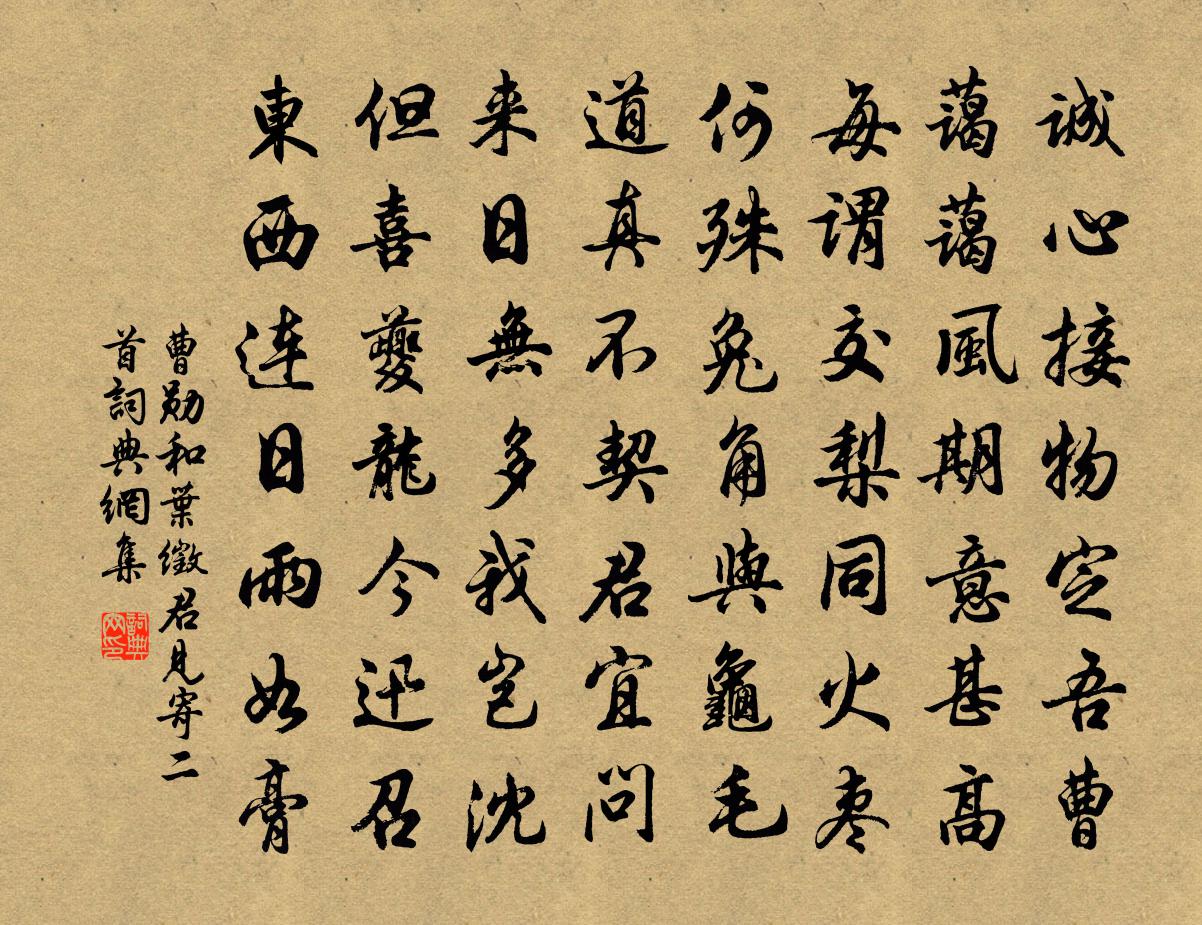 誠心接物定吾曹
藹藹風期意甚高
每謂交梨同火棗
何殊兔角與龜毛
道真不契君宜問
来日無多我豈沈
但喜夔龍今迅召
東西连日雨如膏
曹勛和葉徵君見寄二
首詞典網集
詞典网印